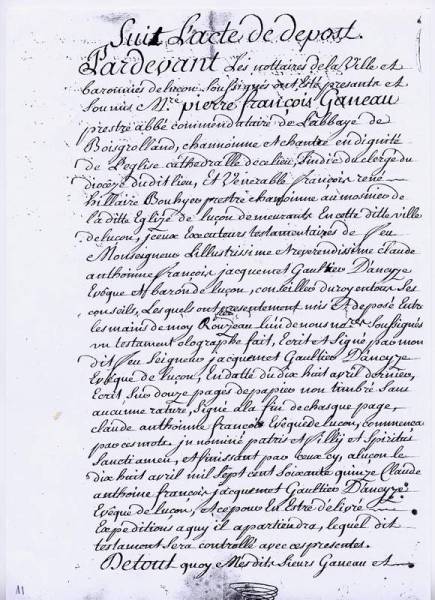 Suit L'acte de depost.
Pardevant Les nottaires de la Ville et
baronnies de luçon Soussignés ont Eté présents et
Soumis Mre. pierre françois Ganeau
prestre abbé commendataire de L'abbaye de
Boisgrolland, channoinne et chantre en dignité
de L'eglise cathédralle de ce lieu, Sindic du clergé du
diocèze dudit lieu, Et Vénérable françois rené
hillaire Bouhyer prestre chanoinne au mosnier de
laditte Eglize de luçon demeurants En cette ditte ville
de luçon, iceux Executeurs testamentaires de feu
Monseigneur L'illustrissime et reverendissime claude
anthoinne françois jacquemet Gaultier D'ancyze
Evêque et baron de luçon, conseiller du roy en tous Ses
conseils, Lesquels ont présentement mis Et déposé Entre
les mains de moy Rouzeau l'un de nous nores. Soussignés
un testament olographe fait, Ecrit et Signé par mon
dit feu Seigneur jacquemet Gaultier D'ancyze
Evêque de luçon, En datte du dix huit avril dernier,
Ecrit Sur douze pages de papier non timbré Sans
aucunne rature, Signé a la fin de chasque page,
claude anthoinne françois Evêque de luçon, commença
par ces mots, in nominé patris et fillij et Spiritus
Sancti amen, et finissant par Ceux cy, a luçon le
dix huit avril mil Sept cent Soixante quinze Claude
anthoine françois jacquemet Gaultier D'ancyze
Evêque de luçon, et ce pour En Estre délivré
Expeditions a quy il appartiendra, lequel dit
testament Sera controllé avec ces présentes.
De tout quoy Mesdits Sieurs Ganeau et
11